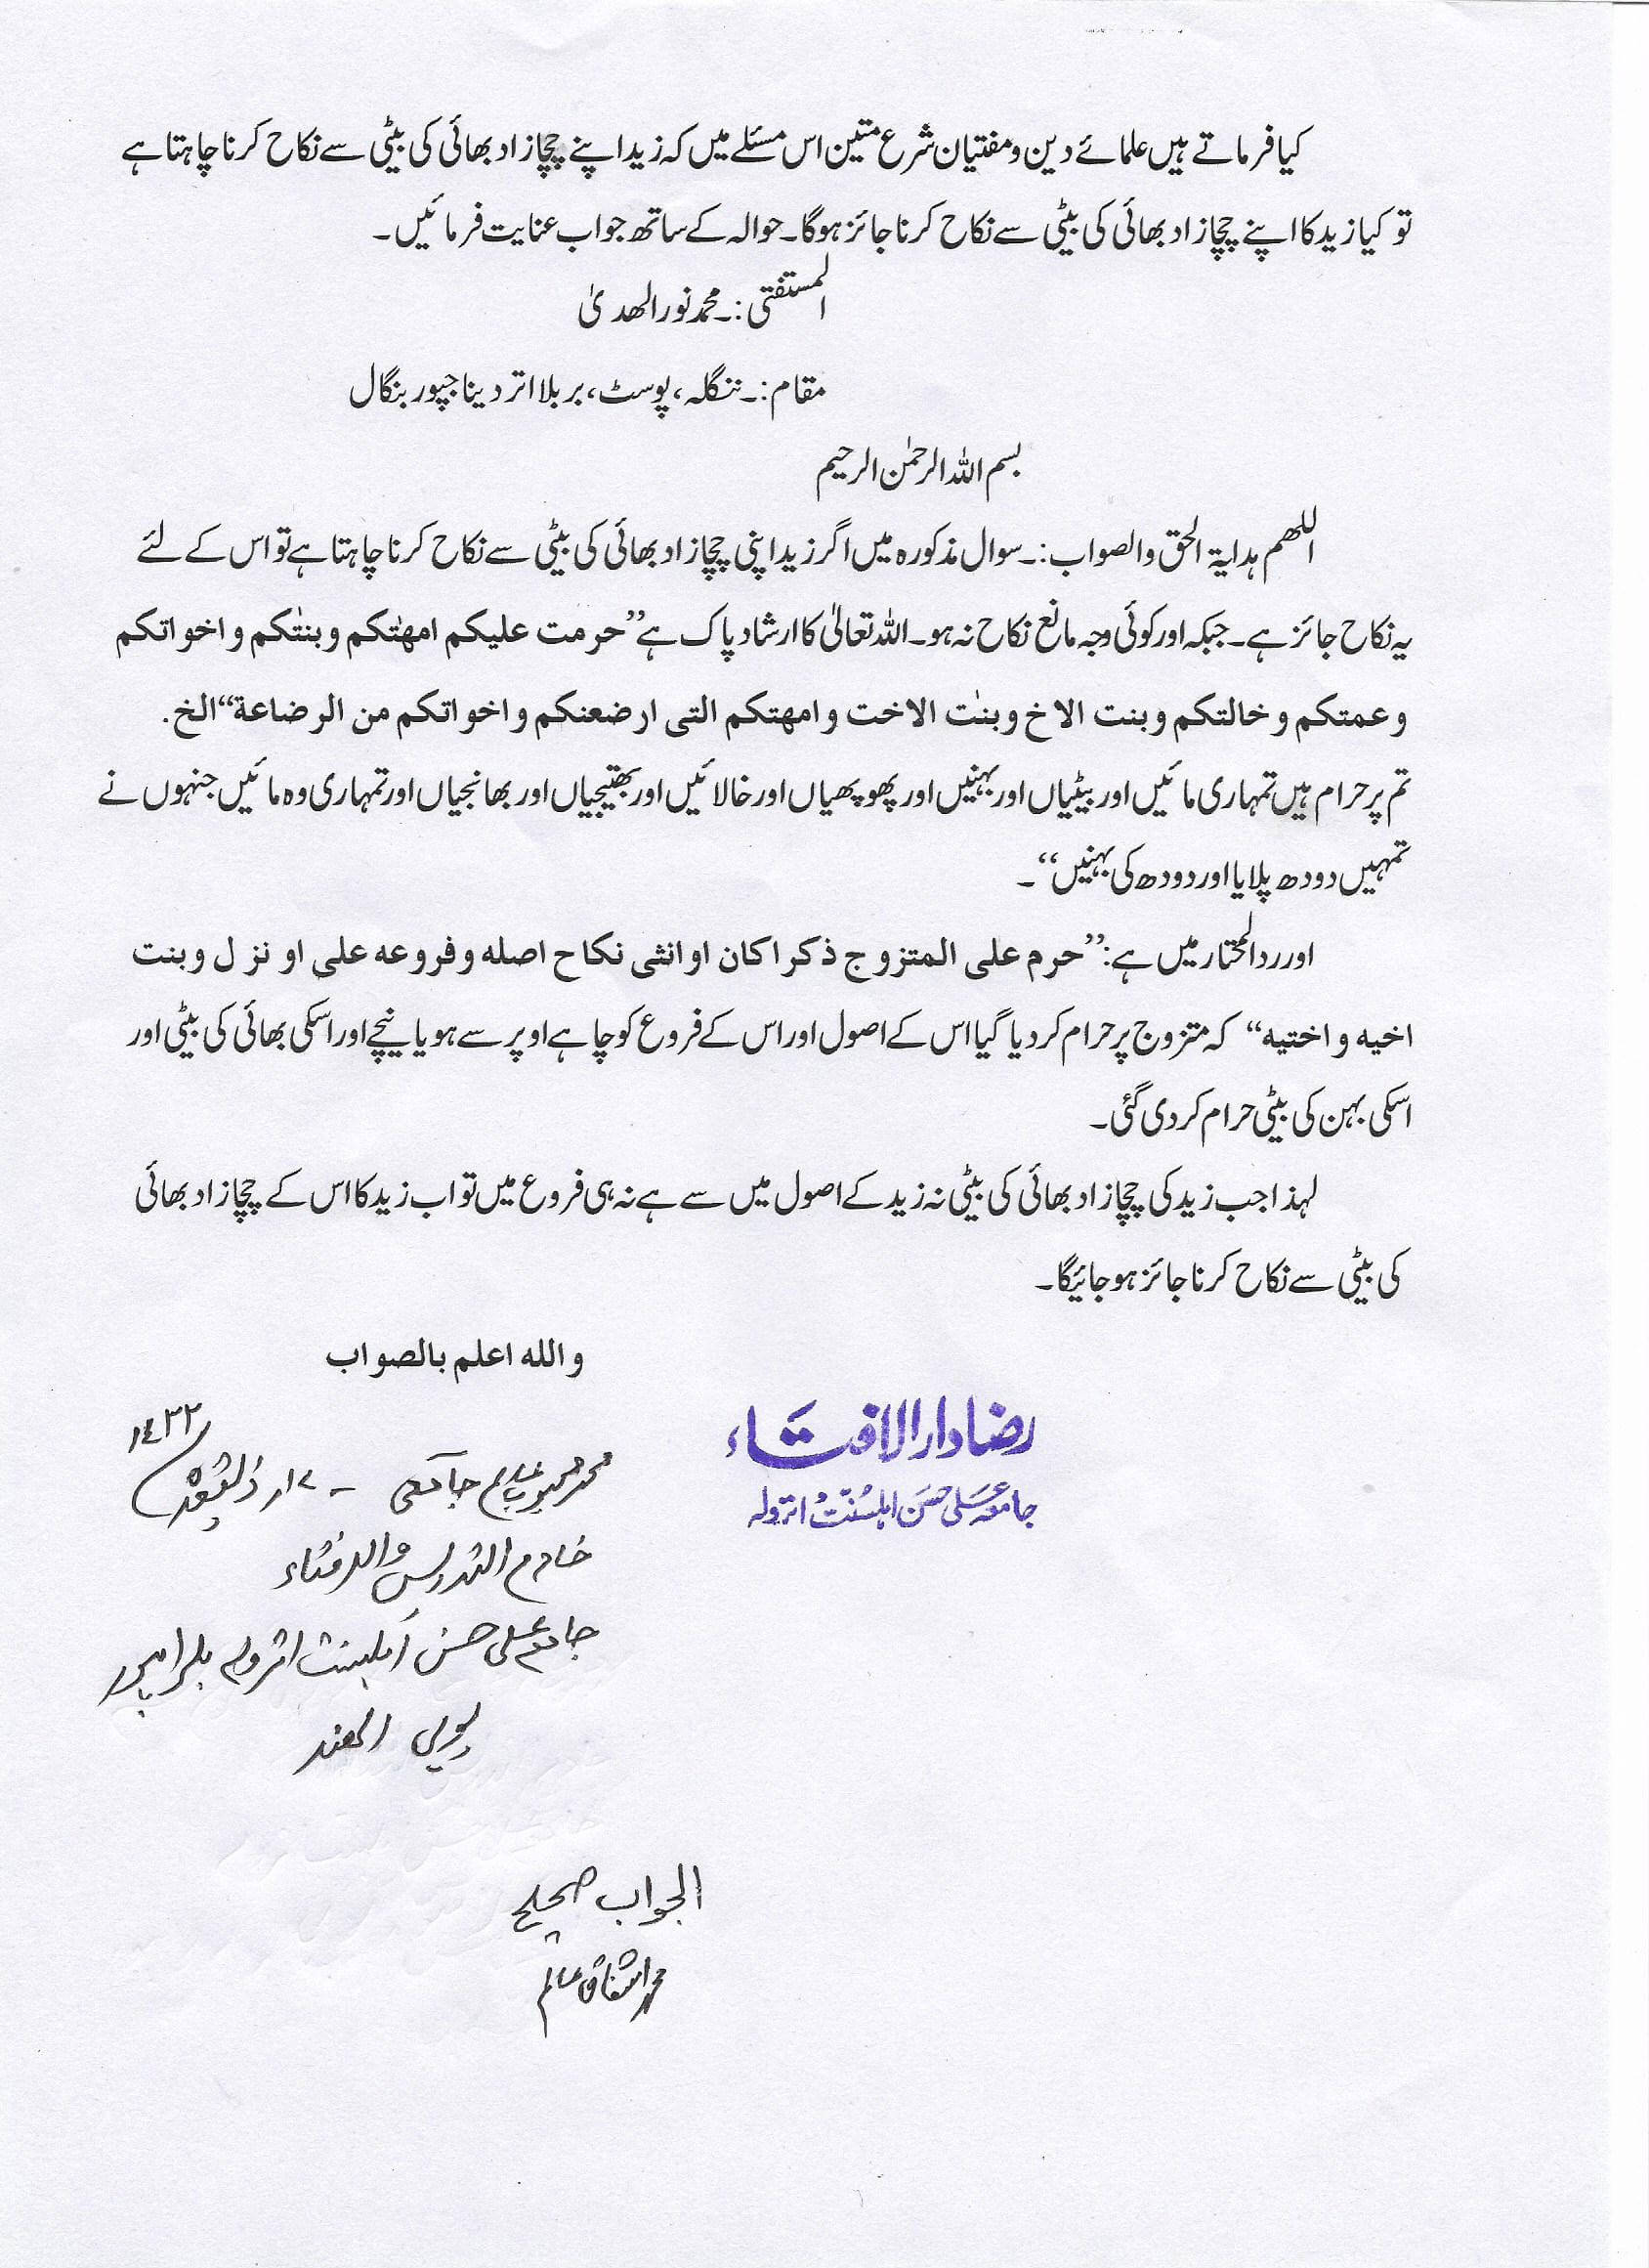 کیا فرماتے ہیں علمائے دین و مفتیان شرع متین اس مسئلے میں کہ زید اپنے چچازاد بھائی کی بیٹی سے نکاح کرنا چاہتا ہے
تو کیا زید کا اپنے چچازاد بھائی کی بیٹی سے نکاح کرنا جائز ہوگا۔ حوالہ کے ساتھ جواب عنایت فرمائیں۔
المستفتی:۔ محمد نور الھدیٰ
مقام:۔ ننگلہ، پوسٹ، بربلا اتر دیناجپور بنگال
بسم اللہ الرحمٰن الرحیم
اللھم ہدایۃ الحق والصواب:۔ سوال مذکورہ میں اگر زید اپنی چچازاد بھائی کی بیٹی سے نکاح کرنا چاہتا ہے تو اس کے لئے
یہ نکاح جائز ہے۔ جبکہ اور کوئی وجہ مانع نکاح نہ ہو۔ اللہ تعالیٰ کا ارشاد پاک ہے ”حرمت علیکم امھٰتکم و بنٰتکم و اخواتکم
و عمتکم و خالتکم و بنت الاخ و بنٰت الاخت و امھتکم التی ارضعنکم و اخواتکم من الرضاعة“ الخ.
تم پر حرام ہیں تمہاری مائیں اور بیٹیاں اور بہنیں اور پھوپھیاں اور خالائیں اور بھتیجیاں اور بھانجیاں اور تمہاری وہ مائیں جنہوں نے
تمہیں دودھ پلایا اور دودھ کی بہنیں“۔
اور ردالمحتار میں ہے: ”حرم علی المتزوج ذکرا کان او انثی نکاح اصله و فروعه علی او نزل و بنت
اخیه و اختیه“ کہ متزوج پر حرام کر دیا گیا اس کے اصول اور اس کے فروع کو چاہے اوپر سے ہو یا نیچے اور اسکی بھائی کی بیٹی اور
اسکی بہن کی بیٹی حرام کر دی گئی۔
لہذا جب زید کی چچازاد بھائی کی بیٹی نہ زید کے اصول میں سے ہے نہ ہی فروع میں تو اب زید کا اس کے چچازاد بھائی
کی بیٹی سے نکاح کرنا جائز ہو جائیگا۔
واللہ اعلم بالصواب
رضا دار الافتاء
جامعہ علی حسن اہلسنت اترولہ
محمد محبوب عالم جامعی ذی القعدہ ١٤٣٢
خادم التدریس والافتاء
جامعہ علی حسن اہلسنت اترولہ بلرامپور
یوپی الھند
الجواب صحیح
محمد اشفاق عالم